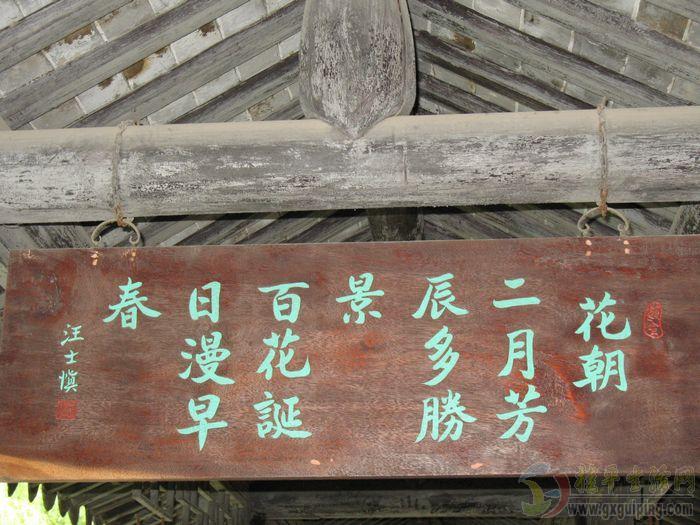 花朝
二月芳
辰多勝
景
百花誕
日漫早
春
汪士慎
桂平生活网
www.gxguiping.com